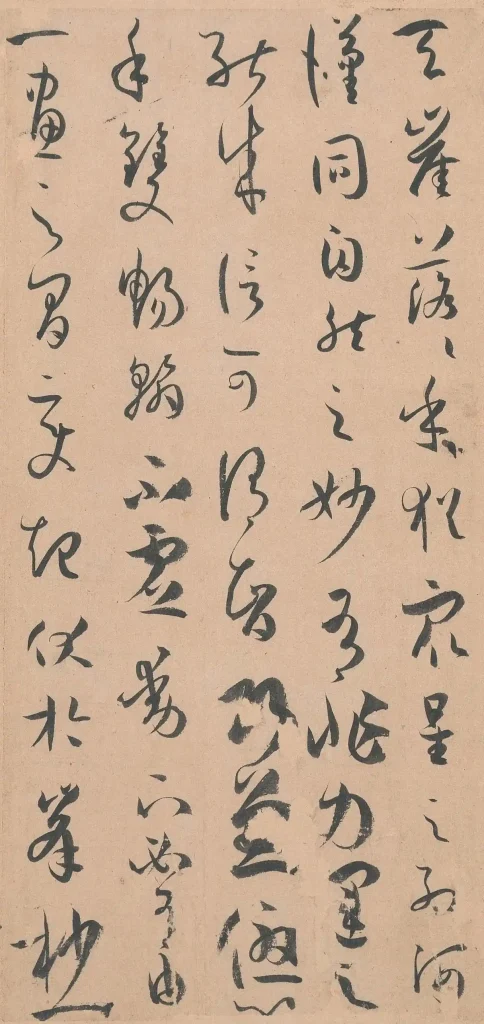 天崖落〻乎猶眾星之列河
漢同自然之妙有非力運之
能成信可謂智巧兼優心
手雙暢翰不虛動下必有由
一畫之間變起伏於峯杪一